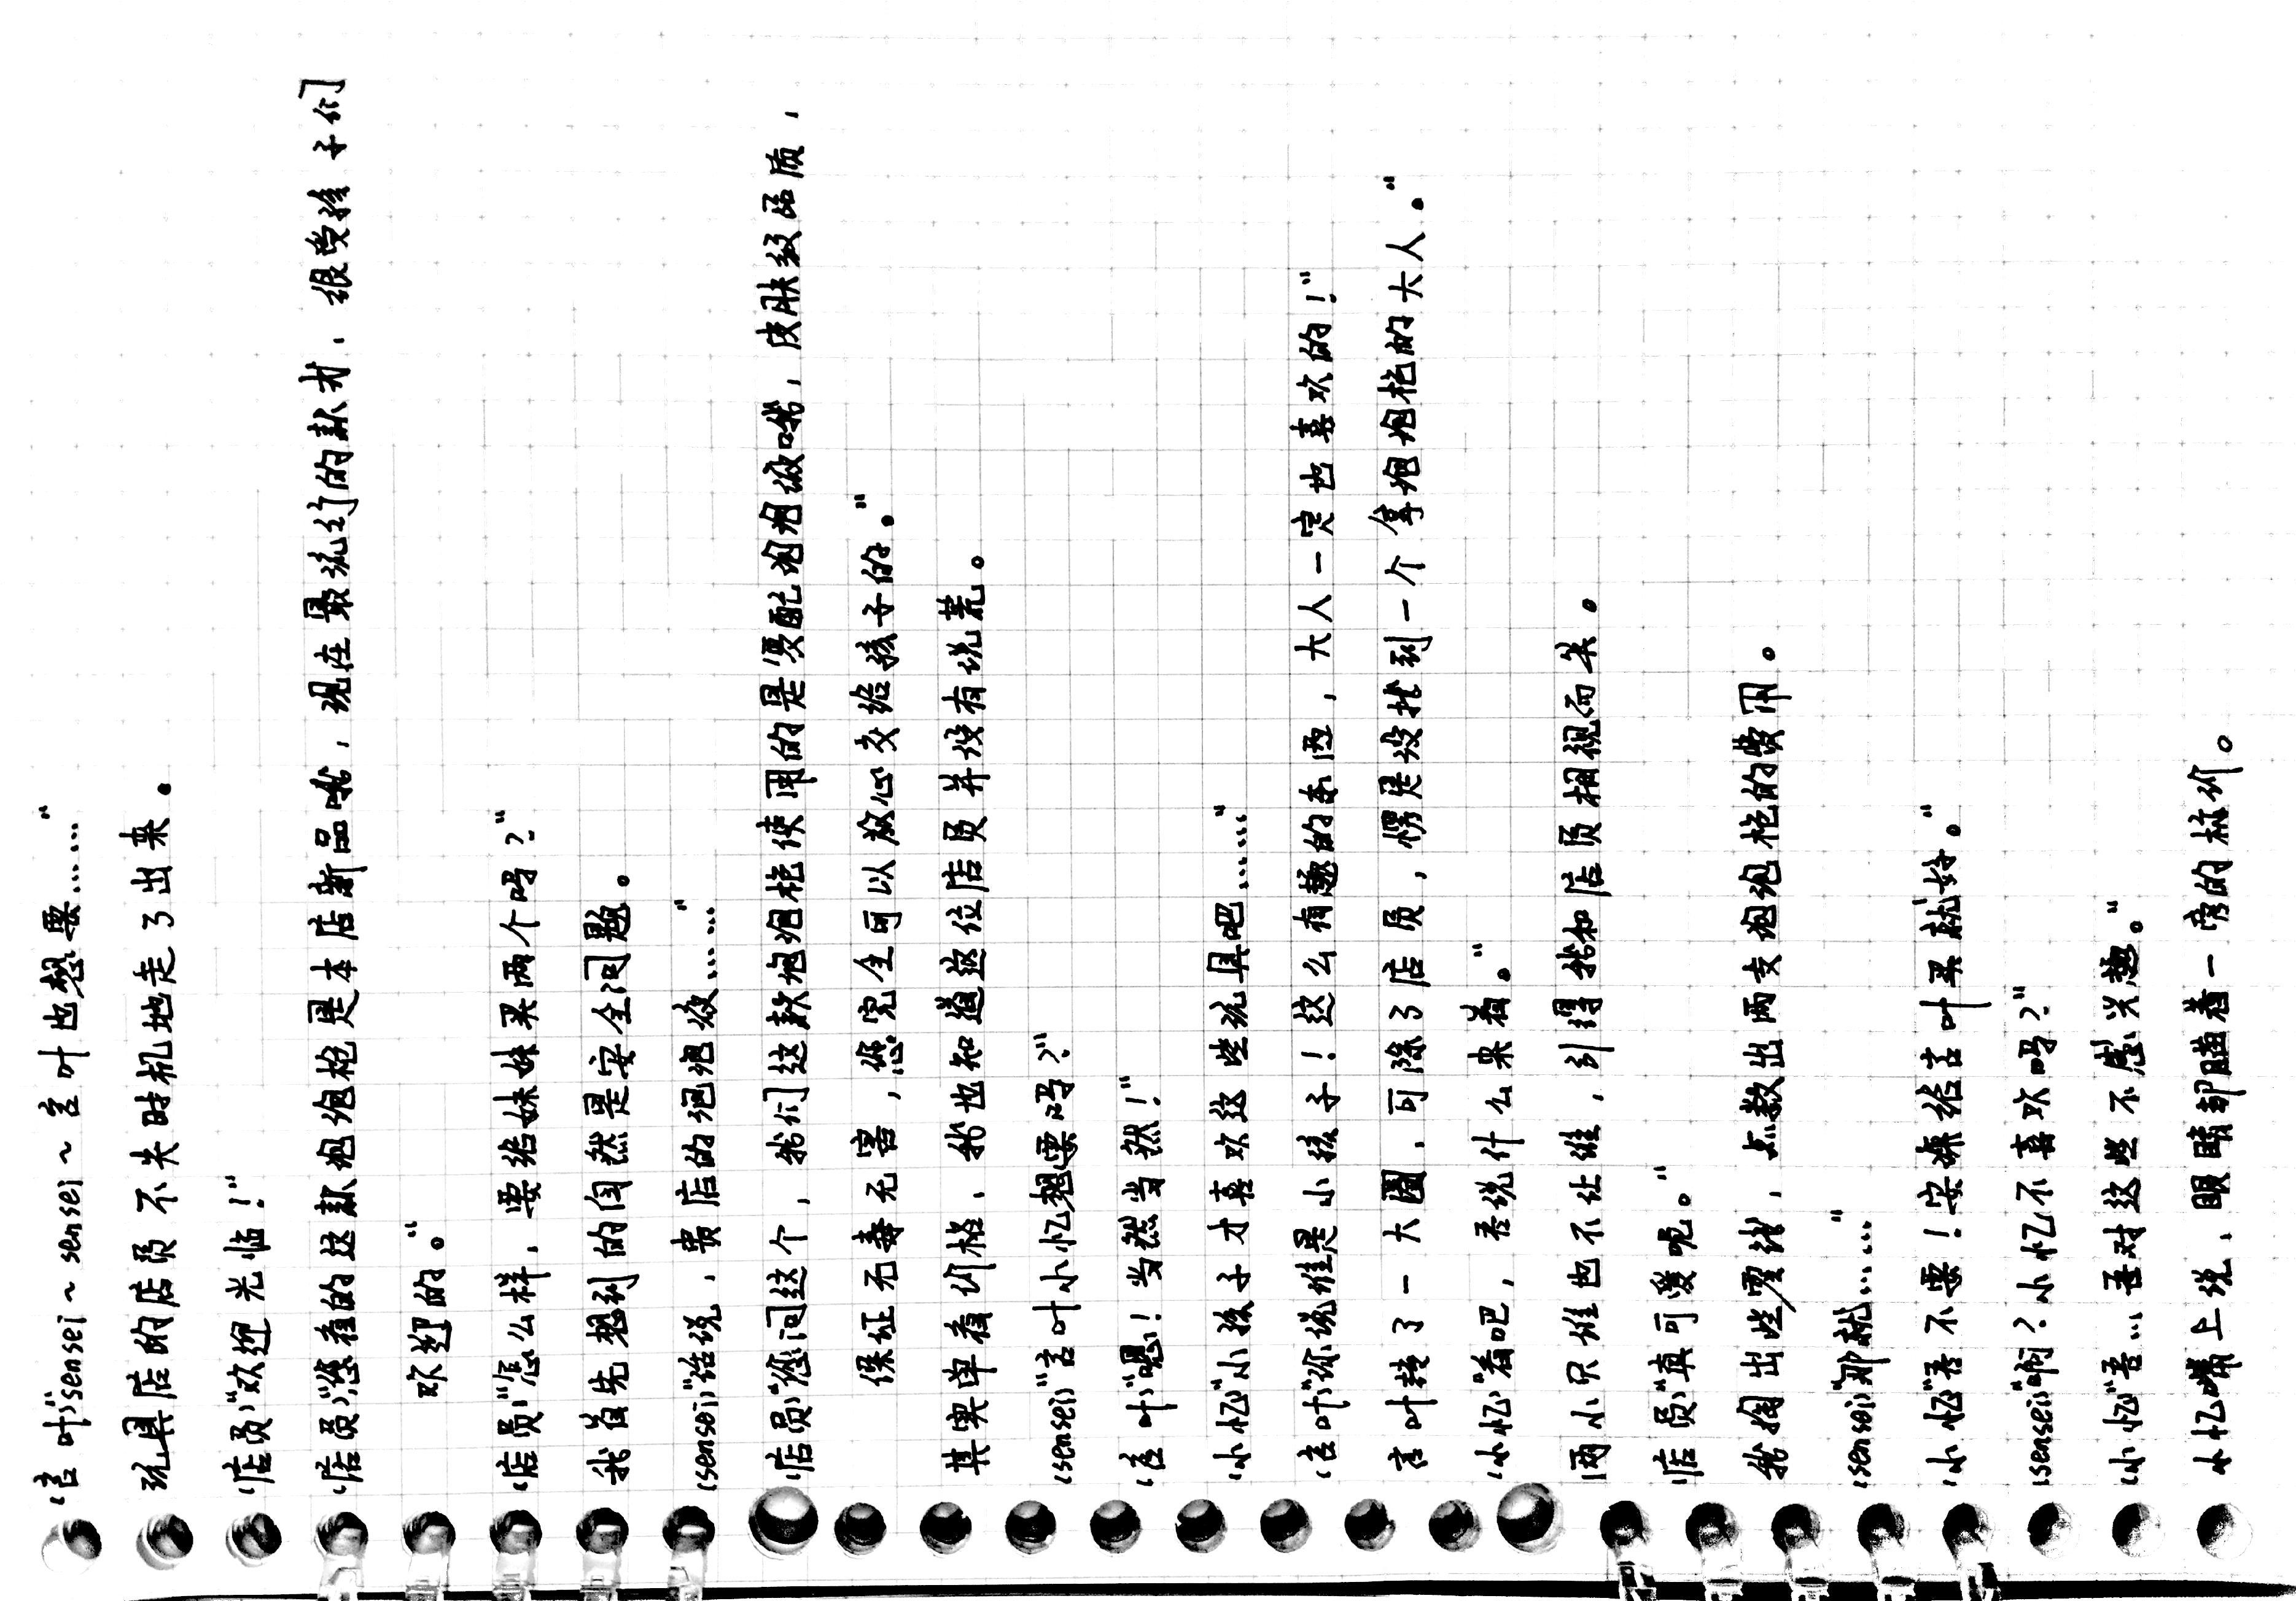 ‘言叶’:“sensei~sensei~言叶也想要……”
玩具店的店员不失时机地走了出来。
‘店员’:“欢迎光临！”
‘店员’:“您看的这款泡泡枪是本店新品哦，现在最流行的款式，很受孩子们
欢迎的。”
‘店员’:“怎么样，要给妹妹买两个吗？”
我首先想到的自然是安全问题。
‘sensei’:“话说，贵店的泡泡液……”
‘店员’:“您问这个，我们这款泡泡枪使用的是专配泡泡液哦，皮肤级品质，
保证无毒无害，您完全可以放心交给孩子的。”
其实单看价格，我也知道这位店员并没有说谎。
‘sensei’:“言叶小忆想要吗？”
‘言叶’:“嗯！当然当然！”
‘小忆’:“小孩子才喜欢这些玩具吧……”
‘言叶’:“你说谁是小孩子！这么有趣的东西，大人一定也喜欢的！”
言叶转了一大圈，可除了店员，愣是没找到一个拿泡泡枪的大人。”
‘小忆’:“看吧，吾说什么来着。”
两小只谁也不让谁，引得我和店员相视而笑。
‘店员’:“真可爱呢。”
我掏出些零钱，点数出两支泡泡枪的费用。
‘sensei’:“那就……”
‘小忆’:“吾不要！安谏给言叶买就好。”
‘sensei’:“啊？小忆不喜欢吗？”
‘小忆’:“吾…吾对这些不感兴趣。”
小忆嘴上说，眼睛却瞄着一旁的标价。